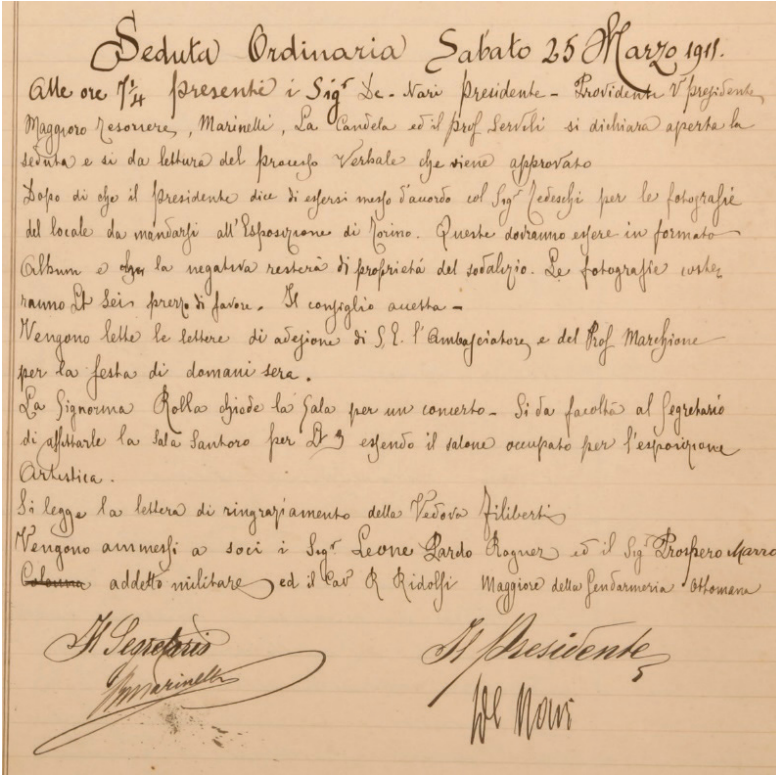 Seduta Ordinaria Sabato 25 Marzo 1911.
Alle ore 7¼ presenti i Sigr De-Nari Presidente - Providenti V presidente,
Maggioro Tesoriere, Marinelli, La Candela ed il prof Servili si dichiara aperta la
seduta e si da lettura del processo Verbale che viene approvato
Dopo di che il presidente dice di essersi messo d'accordo col Sigr Tedeschi per le fotografie
del locale da mandarsi all'Esposizione di Torino. Queste dovranno essere in formato
Album e la negativa resterà di proprietà del sodalizio. Le fotografie coste
ranno Lt Sei prezzo di favore. Il consiglio accetta -
Vengono lette le lettere di adesione di S.E. l'Ambasciatore, e del Prof Marchione
per la festa di domani sera.
La Signorina Rolla chiede la Sala per un concerto - Si da facoltà al Segretario
di affittarle la Sala Santoro per Lt 3 essendo il salone occupato per l'esposizione
Artistica.
Si legge la lettera di ringraziamento della Vedova Filiberti
Vengono ammessi a soci i Sigr Leone Pardo Rogner ed il Sig Prospero Marro
Colonna addetto militare ed il Cav R Ridolfi Maggiore della Gendarmeria Ottomana
Il Segretario
Marinelli
Il Presidente
De Nari